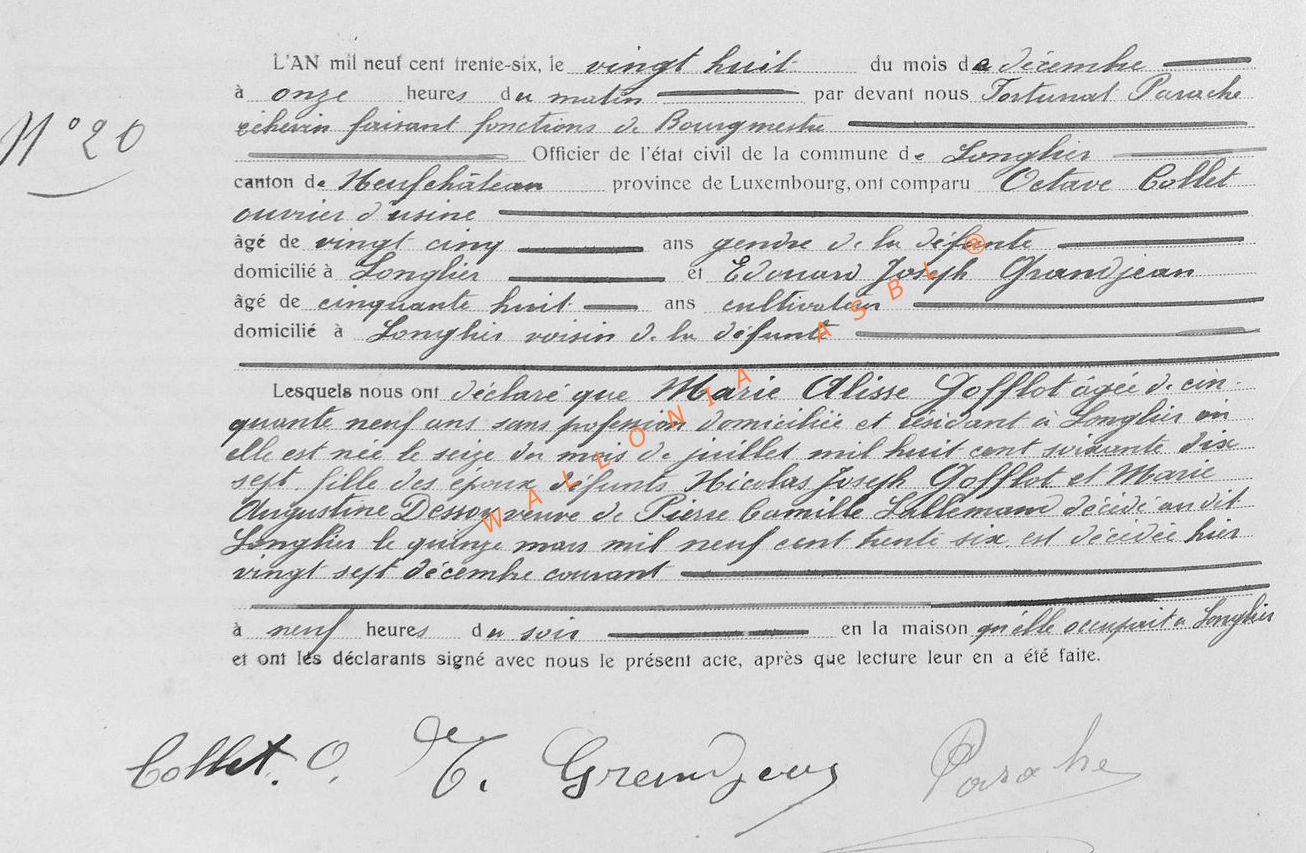 L'AN mil neuf cent trente-six, le vingt huit du mois de décembre
à onze heures du matin par devant nous Fortunat Parache
N° 20
échevin faisant fonctions de Bourgmestre
Officier de l'état civil de la commune de Longlier
canton de Neufchâteau province de Luxembourg, ont comparu Octave Collet
ouvrier d'usine
âgé de vingt cinq ans gendre de la défunte
domicilié à Longlier et Edouard Joseph Grandjean
âgé de cinquante huit ans cultivateur
domicilié à Longlier voisin de la défunte
Lesquels nous ont déclaré que Marie Alisse Gofflot âgée de cin-
quante neuf ans sans profession domiciliée et résidant à Longlier où
elle est née le seize du mois de juillet mil huit cent soixante dix
sept fille des époux défunts Nicolas Joseph Gofflot et Marie
Augustine Dessoy veuve de Pierre Camille Lallemand décédé au dit
Longlier le quinze mars mil neuf cent trente six est décédée hier
vingt sept décembre courant
à neuf heures du soir en la maison qu'elle occupait à Longlier
et ont les déclarants signé avec nous le présent acte, après que lecture leur en a été faite.
Collet. O. Grandjean Parache
WALLONIA ASBL ®